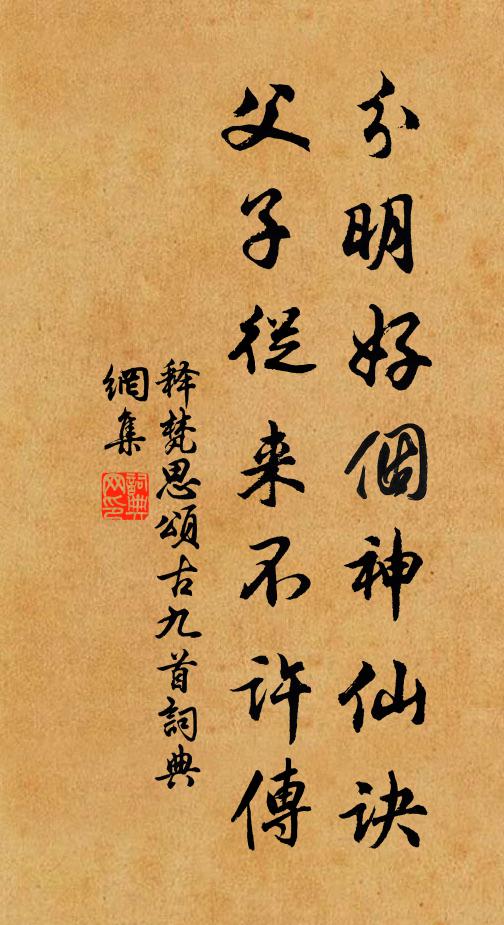 分明好個神仙訣
父子從来不許傳
释梵思頌古九首詞典
網集
詞典
网印